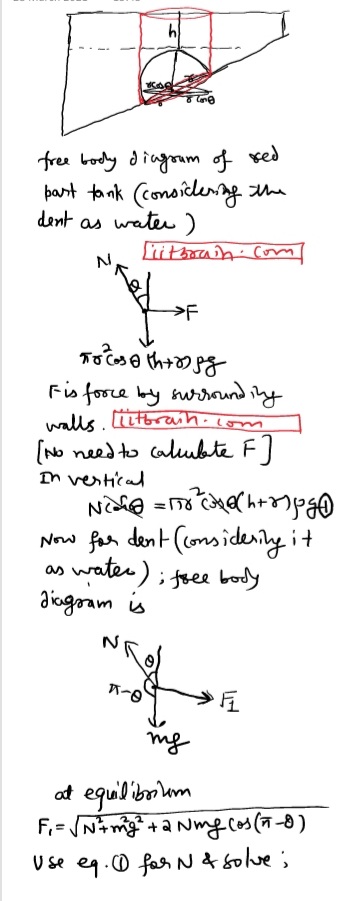 h
rcosθ
r
r
r cosθ
free body diagram of red
part tank (considering the
dent as water)
iitbrain.com
N
θ
F
πr²cosθ (h+r)ρg
F is force by surrounding
walls. iitbrain.com
[No need to calculate F]
In vertical
Ncosθ = πr²cosθ(h+r)ρg ①
Now for dent (considering it
as water); free body
diagram is
N
θ
π-θ
F₁
mg
at equilibrium
F₁ = √N²+m²g²+2Nmg cos(π-θ)
Use eq. ① for N & solve;